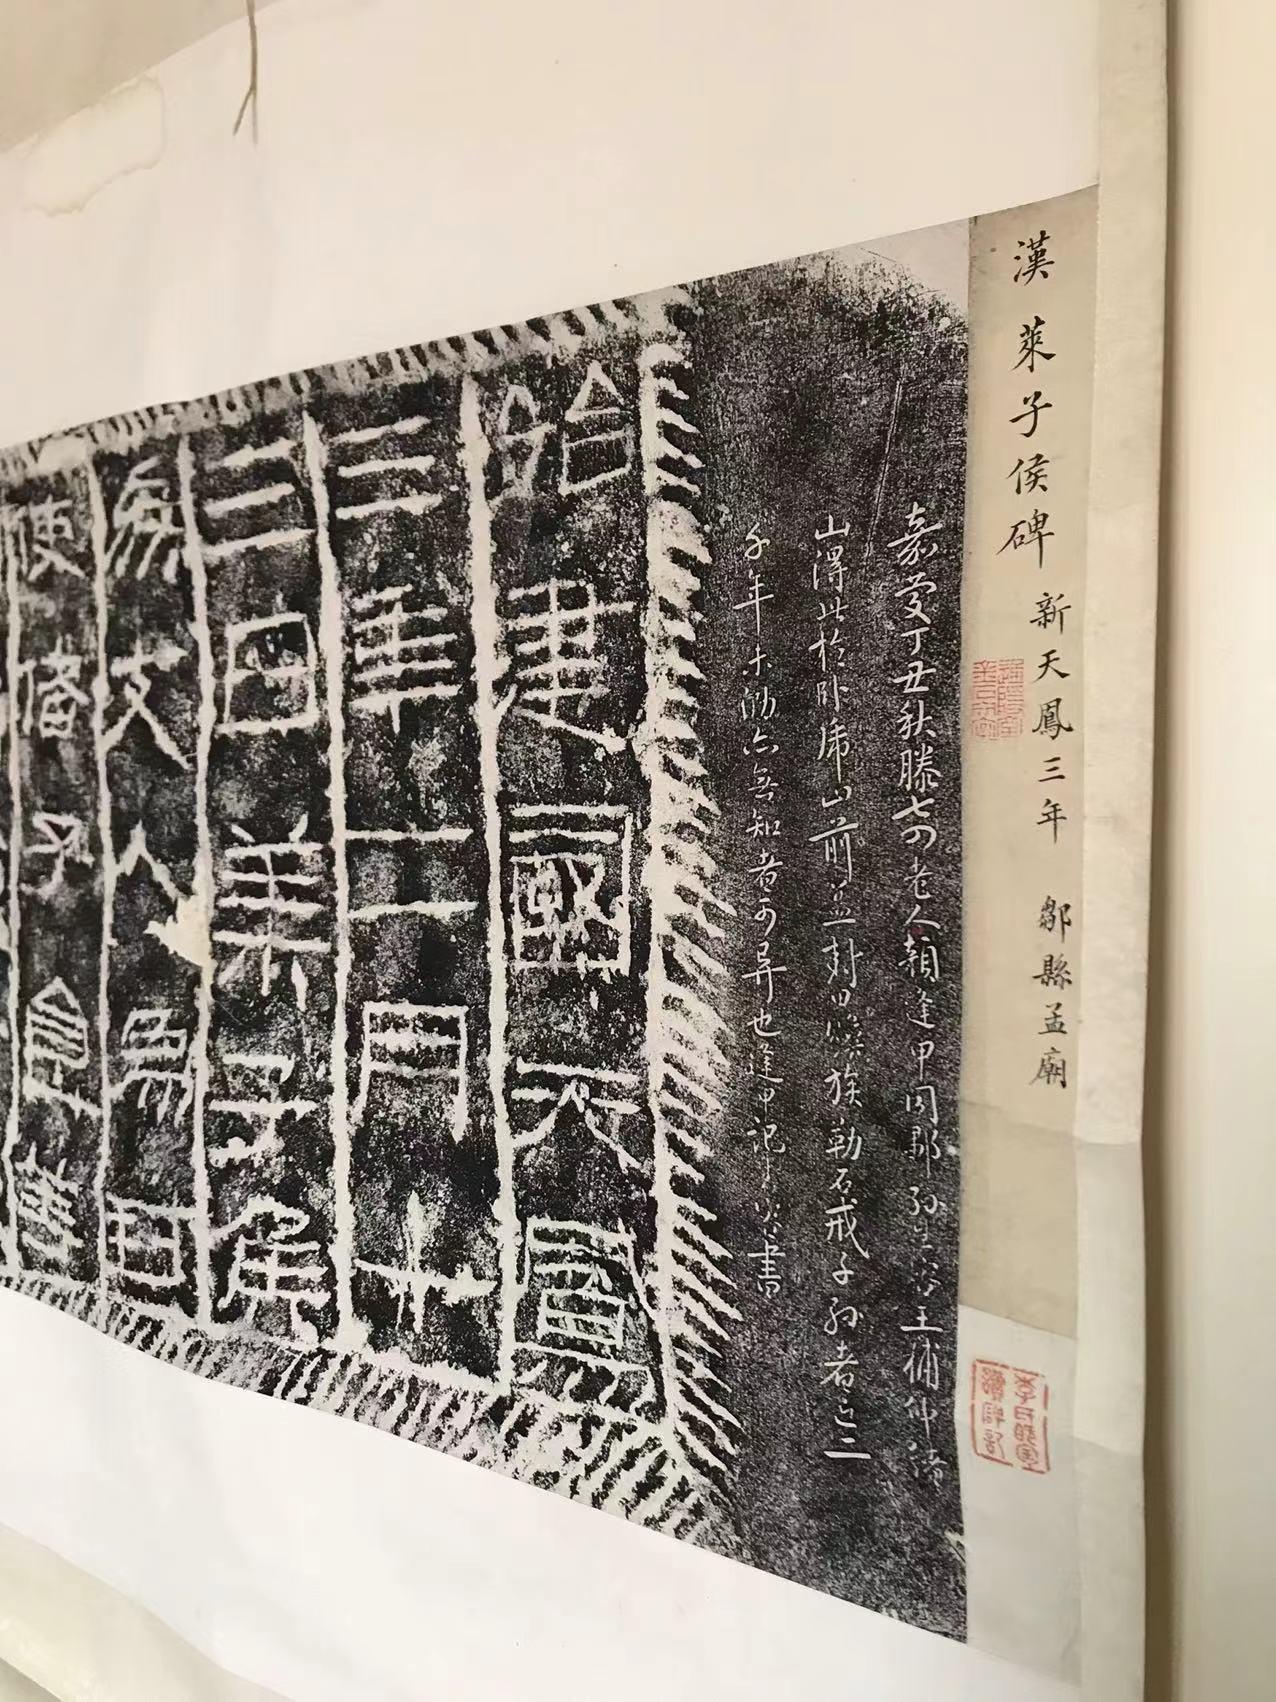 漢萊子侯碑 新天鳳三年 鄒縣孟廟
嘉慶丁丑秋滕七四老人顏逢甲同鄒孫生容王補仲緒
山得此於臥虎山前蓋封田贍族勒石戒子孫者近二
千年未泐亦無知者可異也逢甲記生炎書
始建國天鳳
三年二月十
三日萊子侯
為支人為封
使偖子食等
李氏曉園
讀碑記